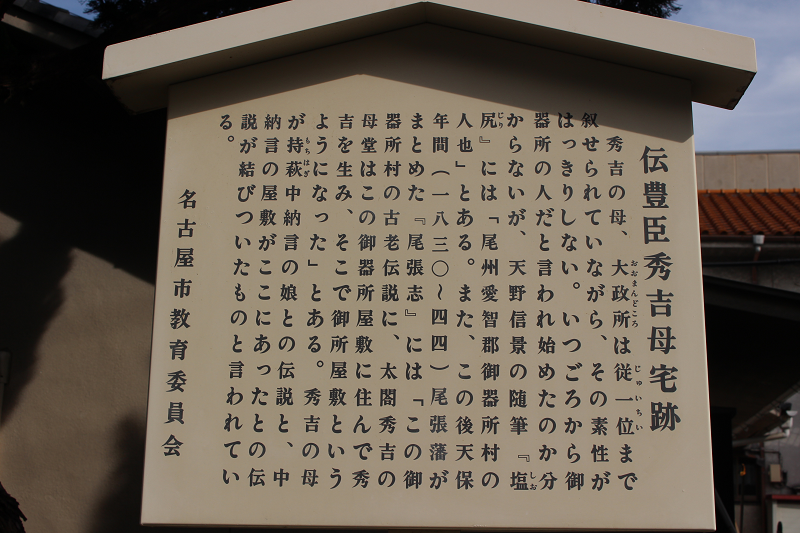 伝豊臣秀吉母宅跡
秀吉の母、大政所は従一位まで
叙せられていながら、その素性が
はっきりしない。いつごろから御
器所の人だと言われ始めたのか分
からないが、天野信景の随筆『塩
尻』には「尾州愛智郡御器所村の
人也」とある。また、この後天保
年間(一八三〇～四四)尾張藩が
まとめた『尾張志』には「この御
器所村の古老伝説に、太閤秀吉の
母堂はこの御器所屋敷に住んで秀
吉を生み、そこで御所屋敷という
ようになった」とある。秀吉の母
が持萩中納言の娘との伝説と、中
納言の屋敷がここにあったとの伝
説が結びついたものと言われてい
る。
名古屋市教育委員会